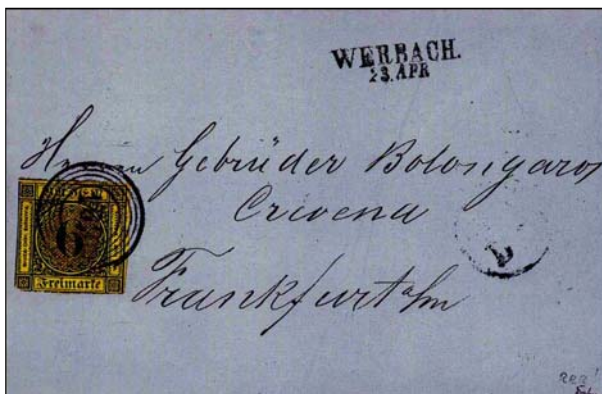 WERBACH.
23. APR
Herren Gebrüder Bolongaros
Crevena
Frankfurt a/m
6
Freimarke